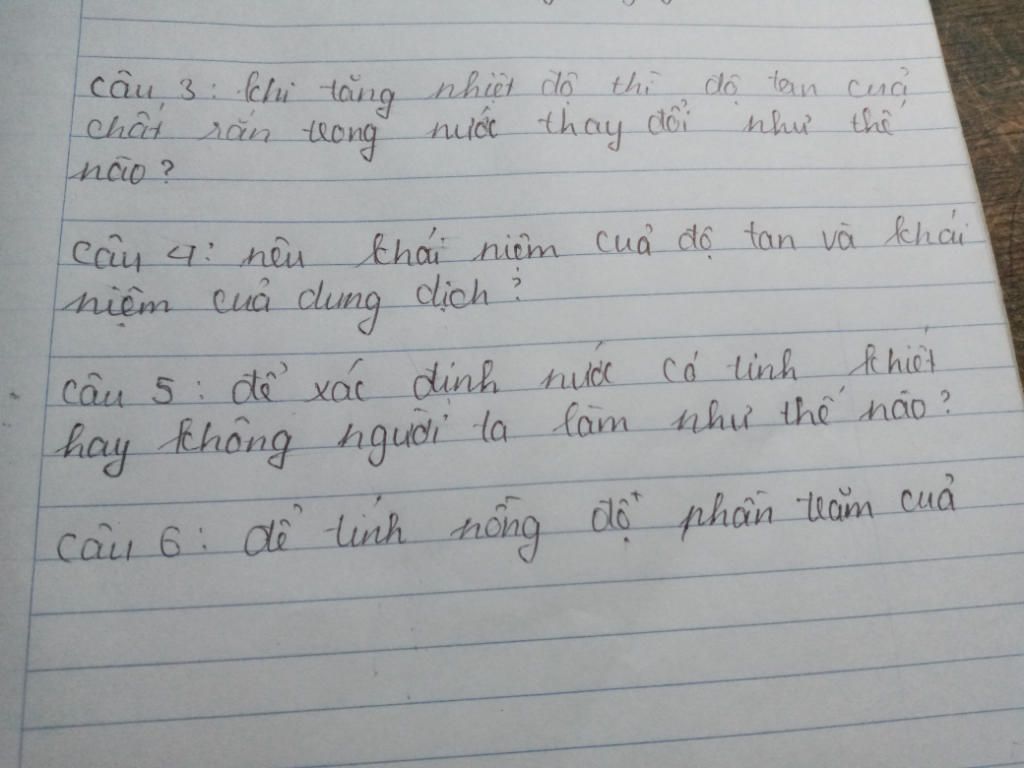 Câu 3: Khi tăng nhiệt độ thì độ tan cuả
chất rắn trong nước thay đổi như thế
nào?
Câu 4: nêu khái niệm cuả độ tan và khái
niệm cuả dung dịch?
Câu 5: để xác định nước có tinh khiết
hay không người ta làm như thế nào?
Câu 6: để tính nồng độ phần trăm cuả